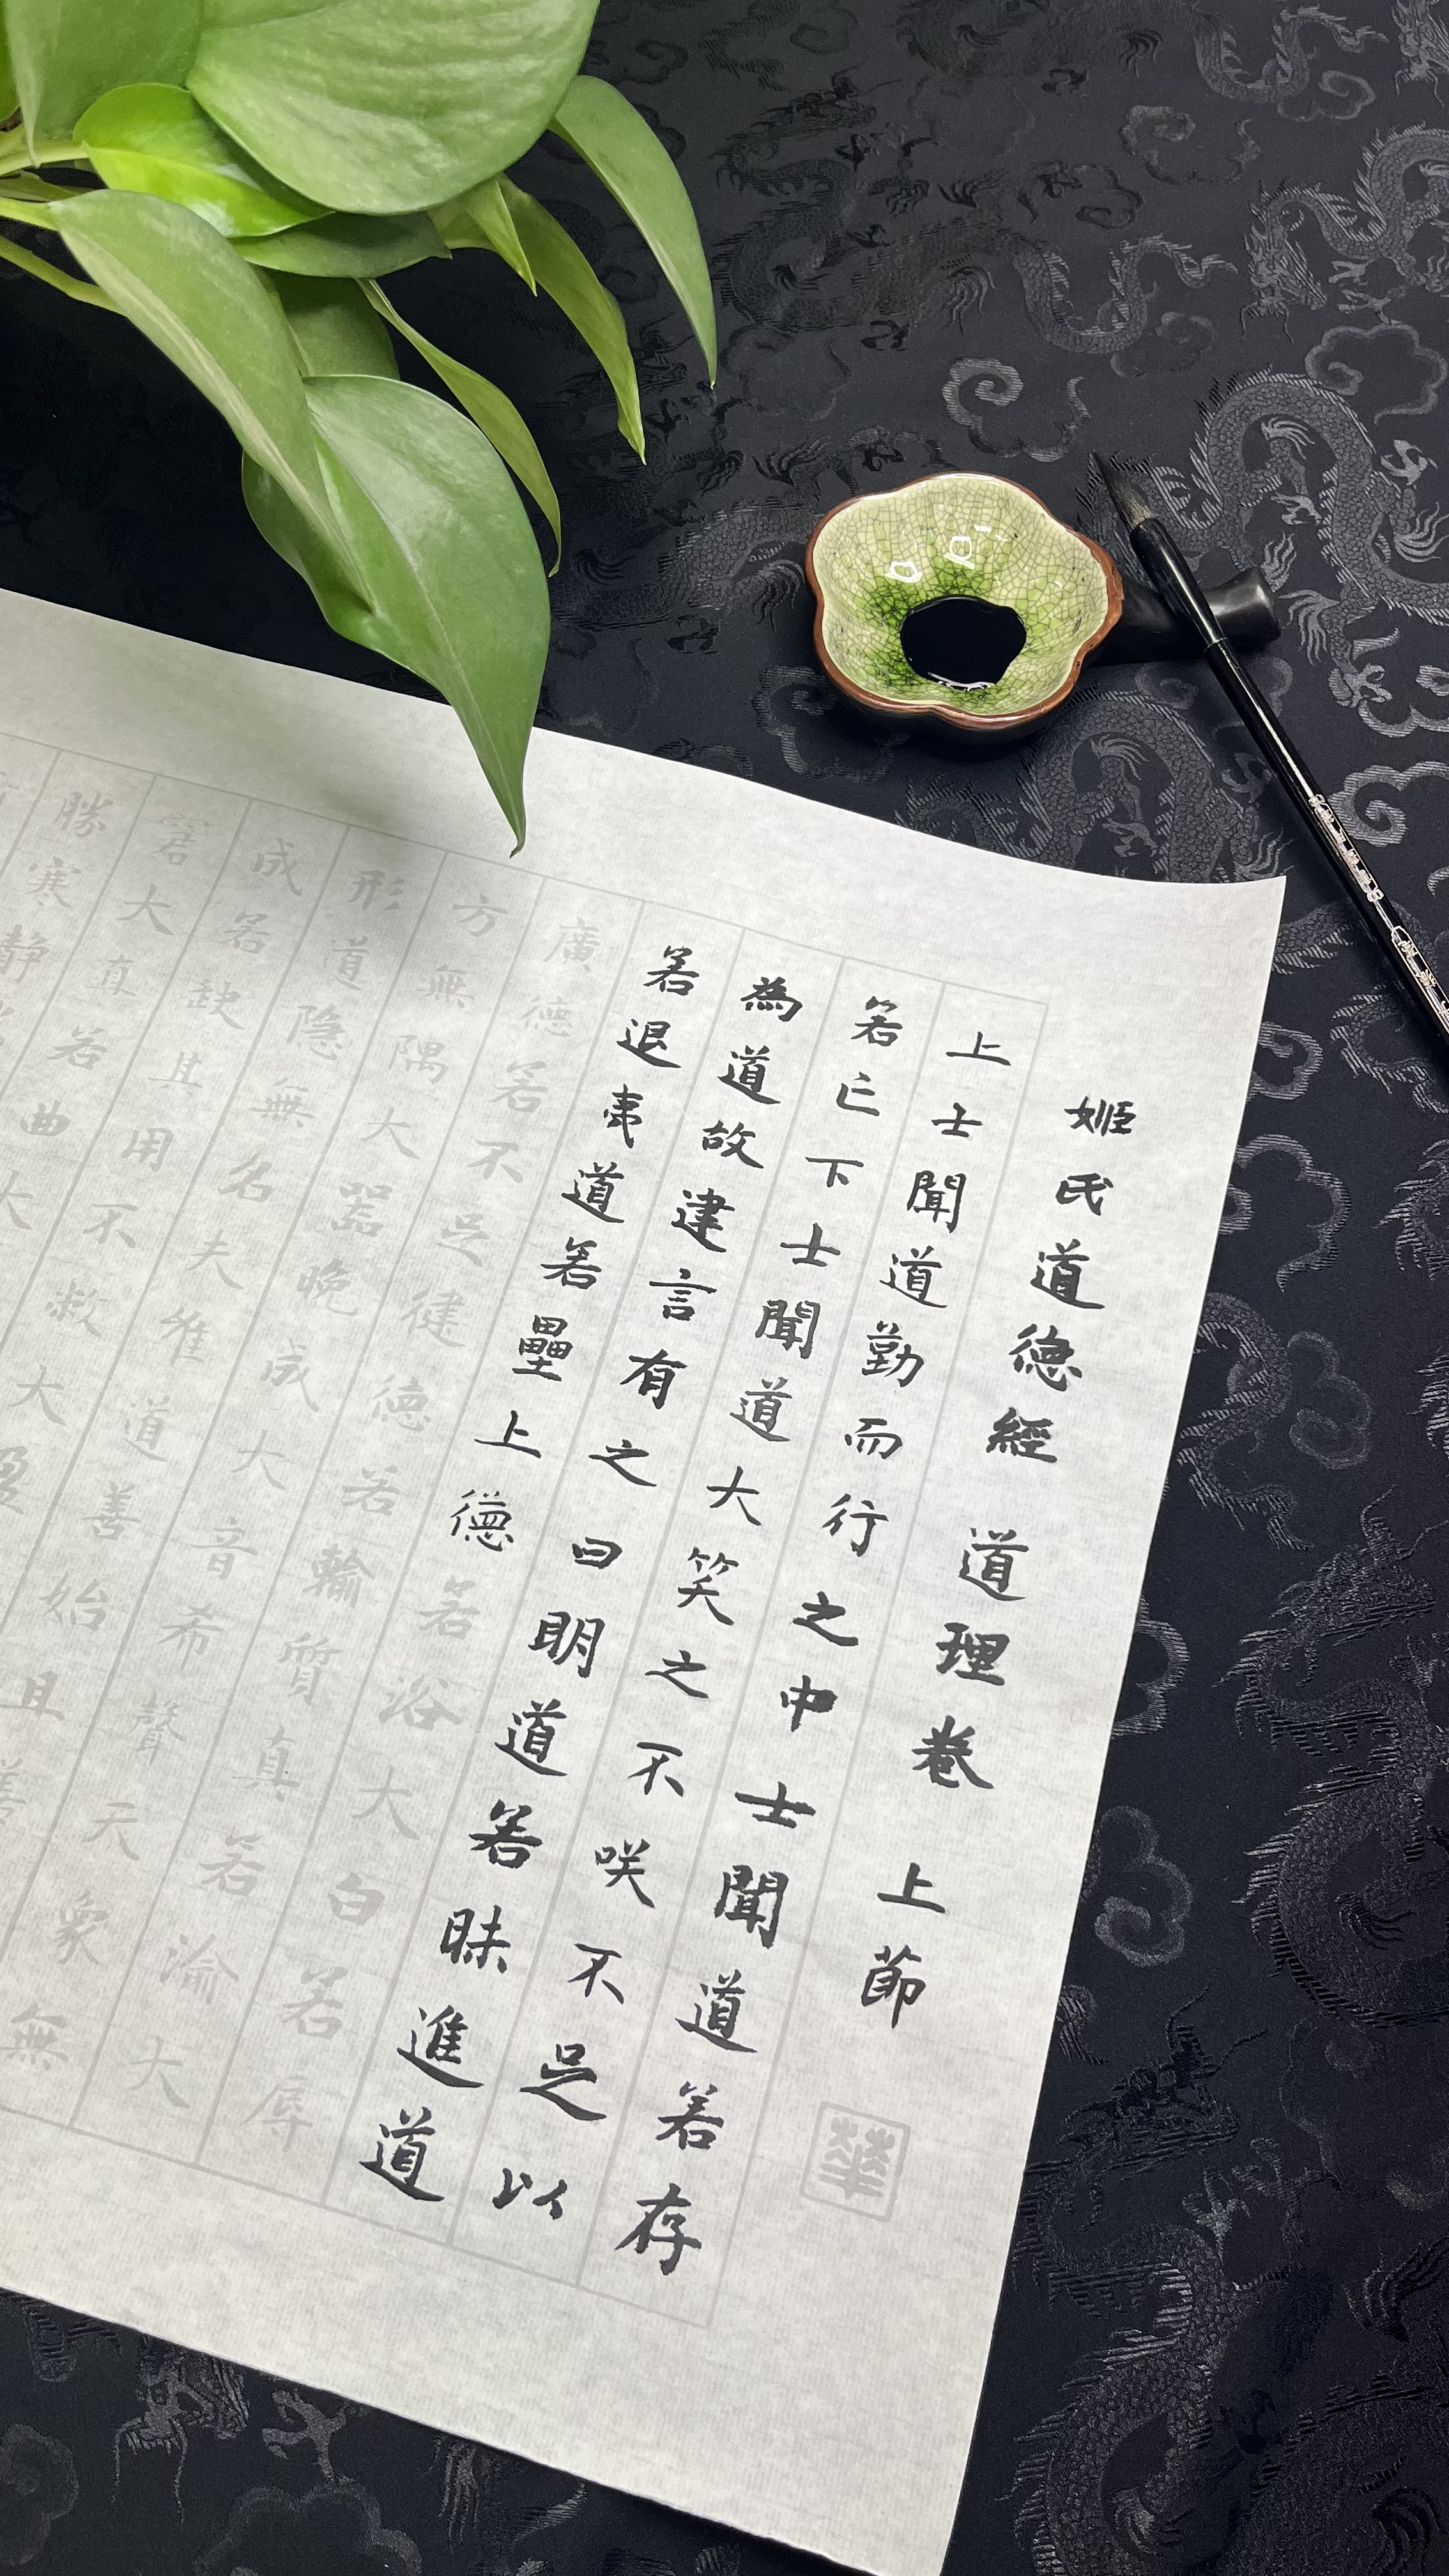 姬氏道德經 道理卷 上節
華
上士聞道勤而行之中士聞道若存
若亡下士聞道大笑之不咲不足以
為道故建言有之曰明道若昧進道
若退夷道若壘上德若浴大白若辱
廣德若不足健德若輸質真若渝大
方無隅大器晚成大音希聲天象無
形道隱無名夫唯道善始且善
成若缺其用不敝大盈
若大直若曲大
勝寒靜